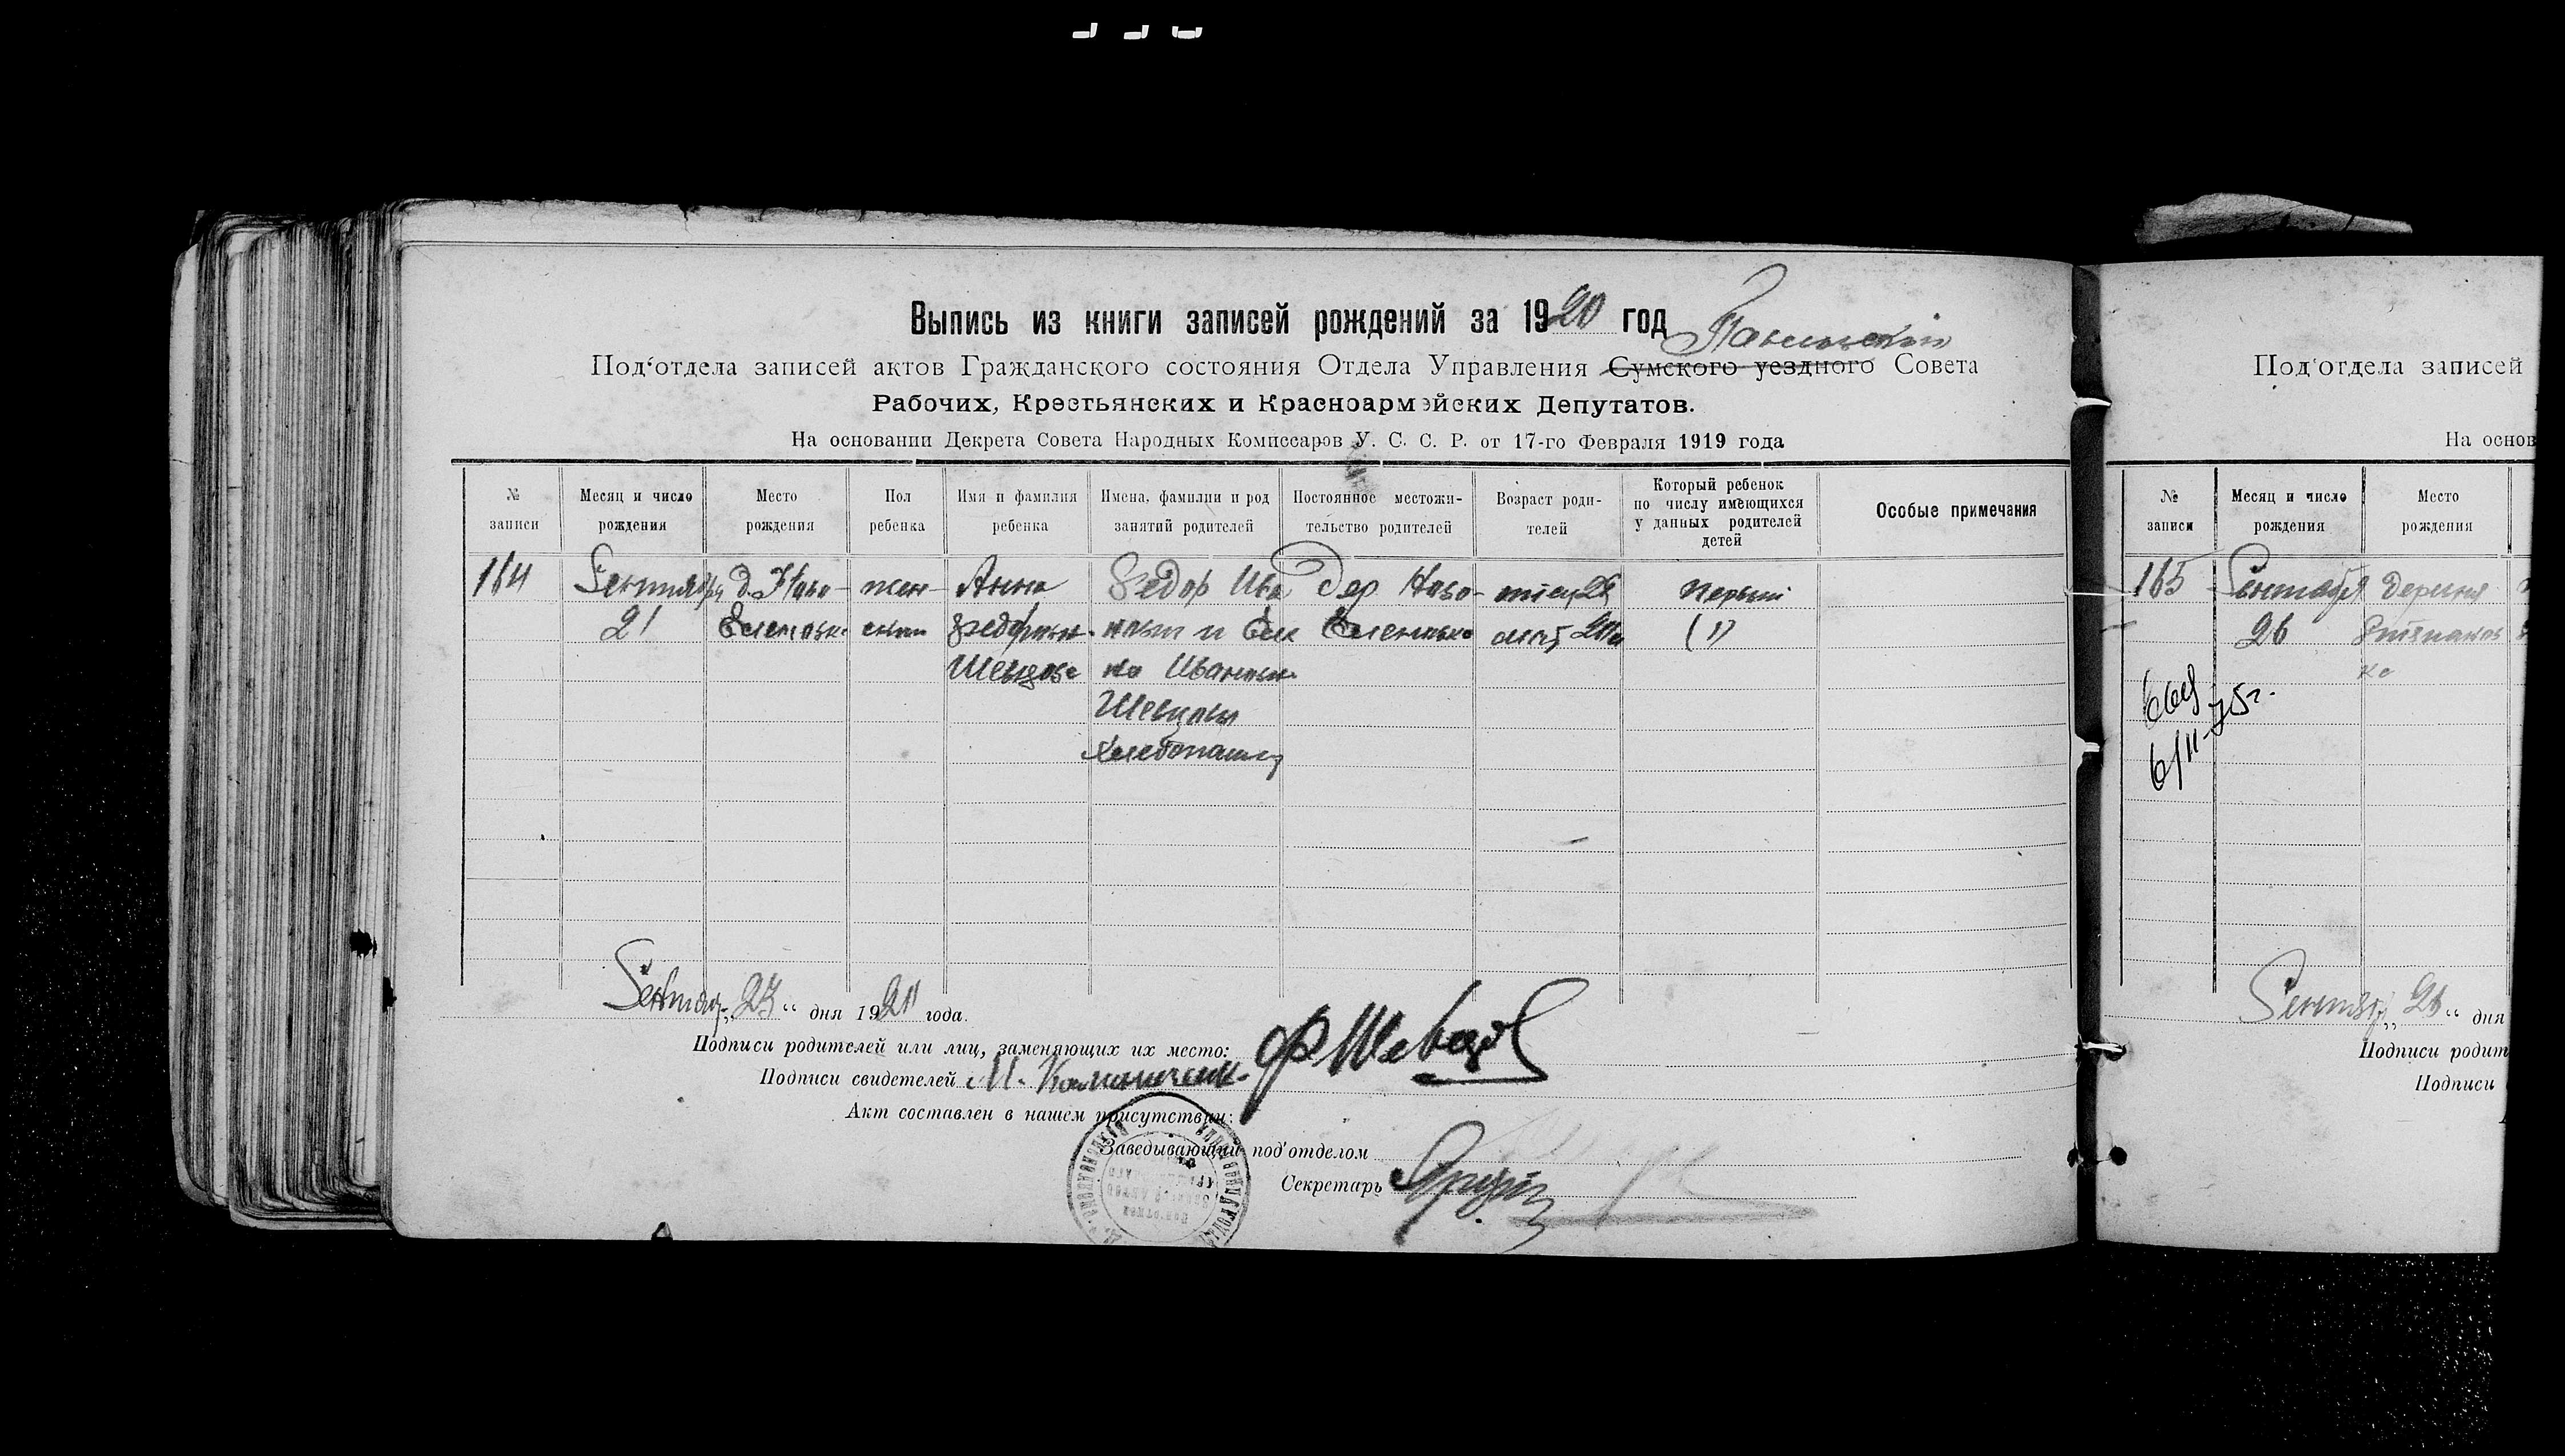 Выпись из книги записей рождений за 1920 год
Под‘отдела записей актов Гражданского состояния Отдела Управления Сумского уездного Совета
Рабочих, Крестьянских и Красноармейских Депутатов.
На основании Декрета Совета Народных Комиссаров У. С. С. Р. от 17-го Февраля 1919 года
№ записи
Месяц и число рождения
Место рождения
Пол ребенка
Имя и фамилия ребенка
Имена, фамилии и род занятий родителей
Постоянное местожи-
тельство родителей
Возраст роди-
телей
Который ребенок
по числу имеющихся
у данных родителей
детей
Особые примечания
164 Сентября д. Ново- жен- Анна Федор Ива Дер Ново- отец 26 первый
21 Еленовке ский нович и Еле Еленовке мать (1)
Шевцова на Ивановна
Шевцовы
хлебопашцы
23 “ дня 1920 года.
Подписи родителей или лиц, заменяющих их место: Ф Шевцов
Подписи свидетелей М.
Акт составлен в нашем присутствии:
Заведывающий под‘отделом
Секретарь
Под‘отдела записей
На основ
№ записи
Месяц и число рождения
Место рождения
165 Сентября деревня
26
ке
6/II-75г.
26 “ дня
Подписи родит
Подписи